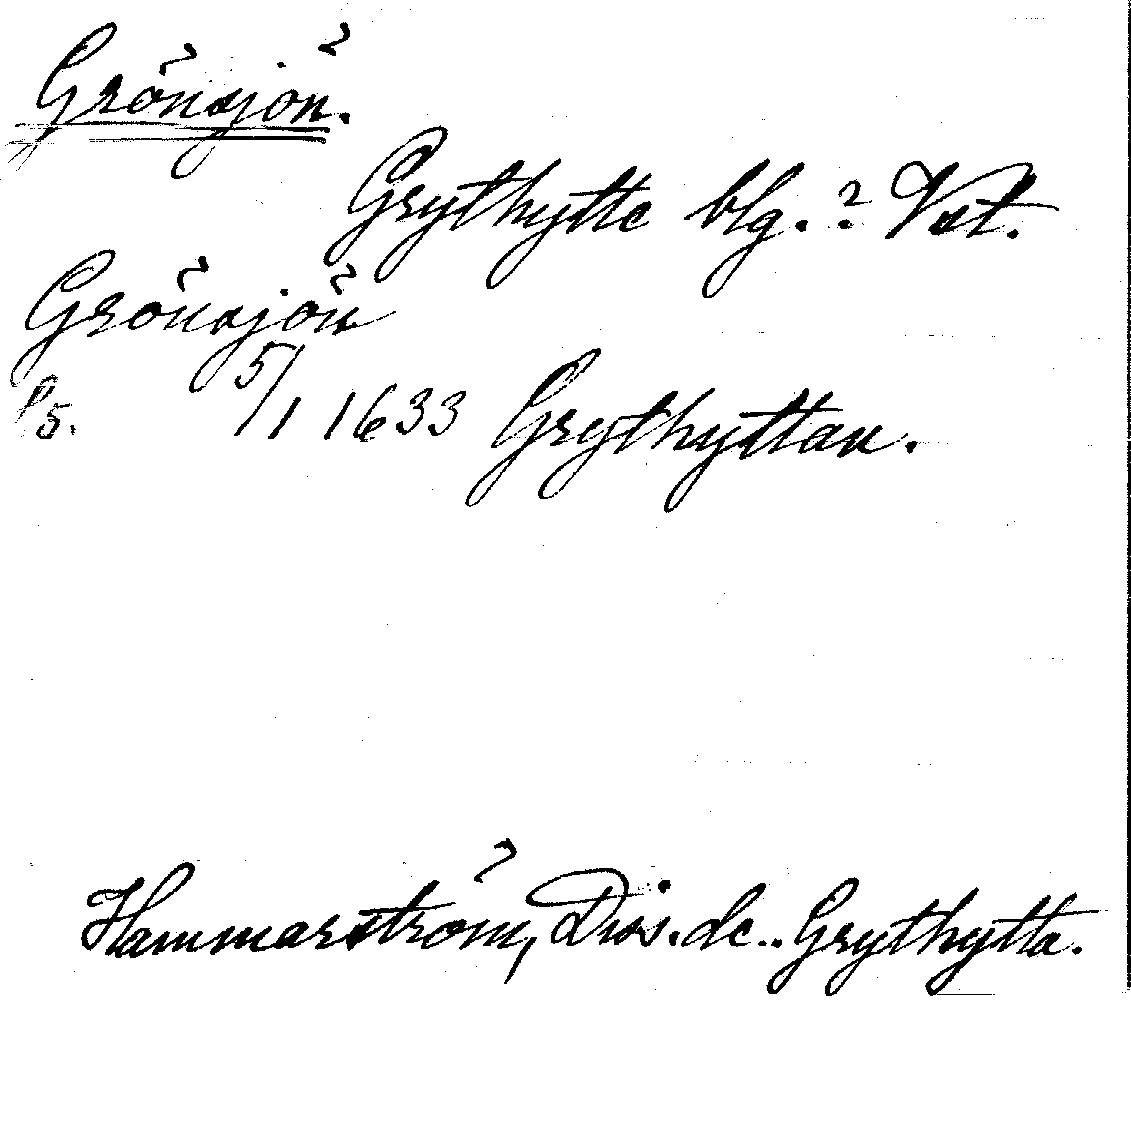 Grönsjön.
Grythytte blg. ? Vst.
Grönsjön
P5. 5/1 1633 Grythyttan.
Hammarström, Dis. de .. Grythytta.